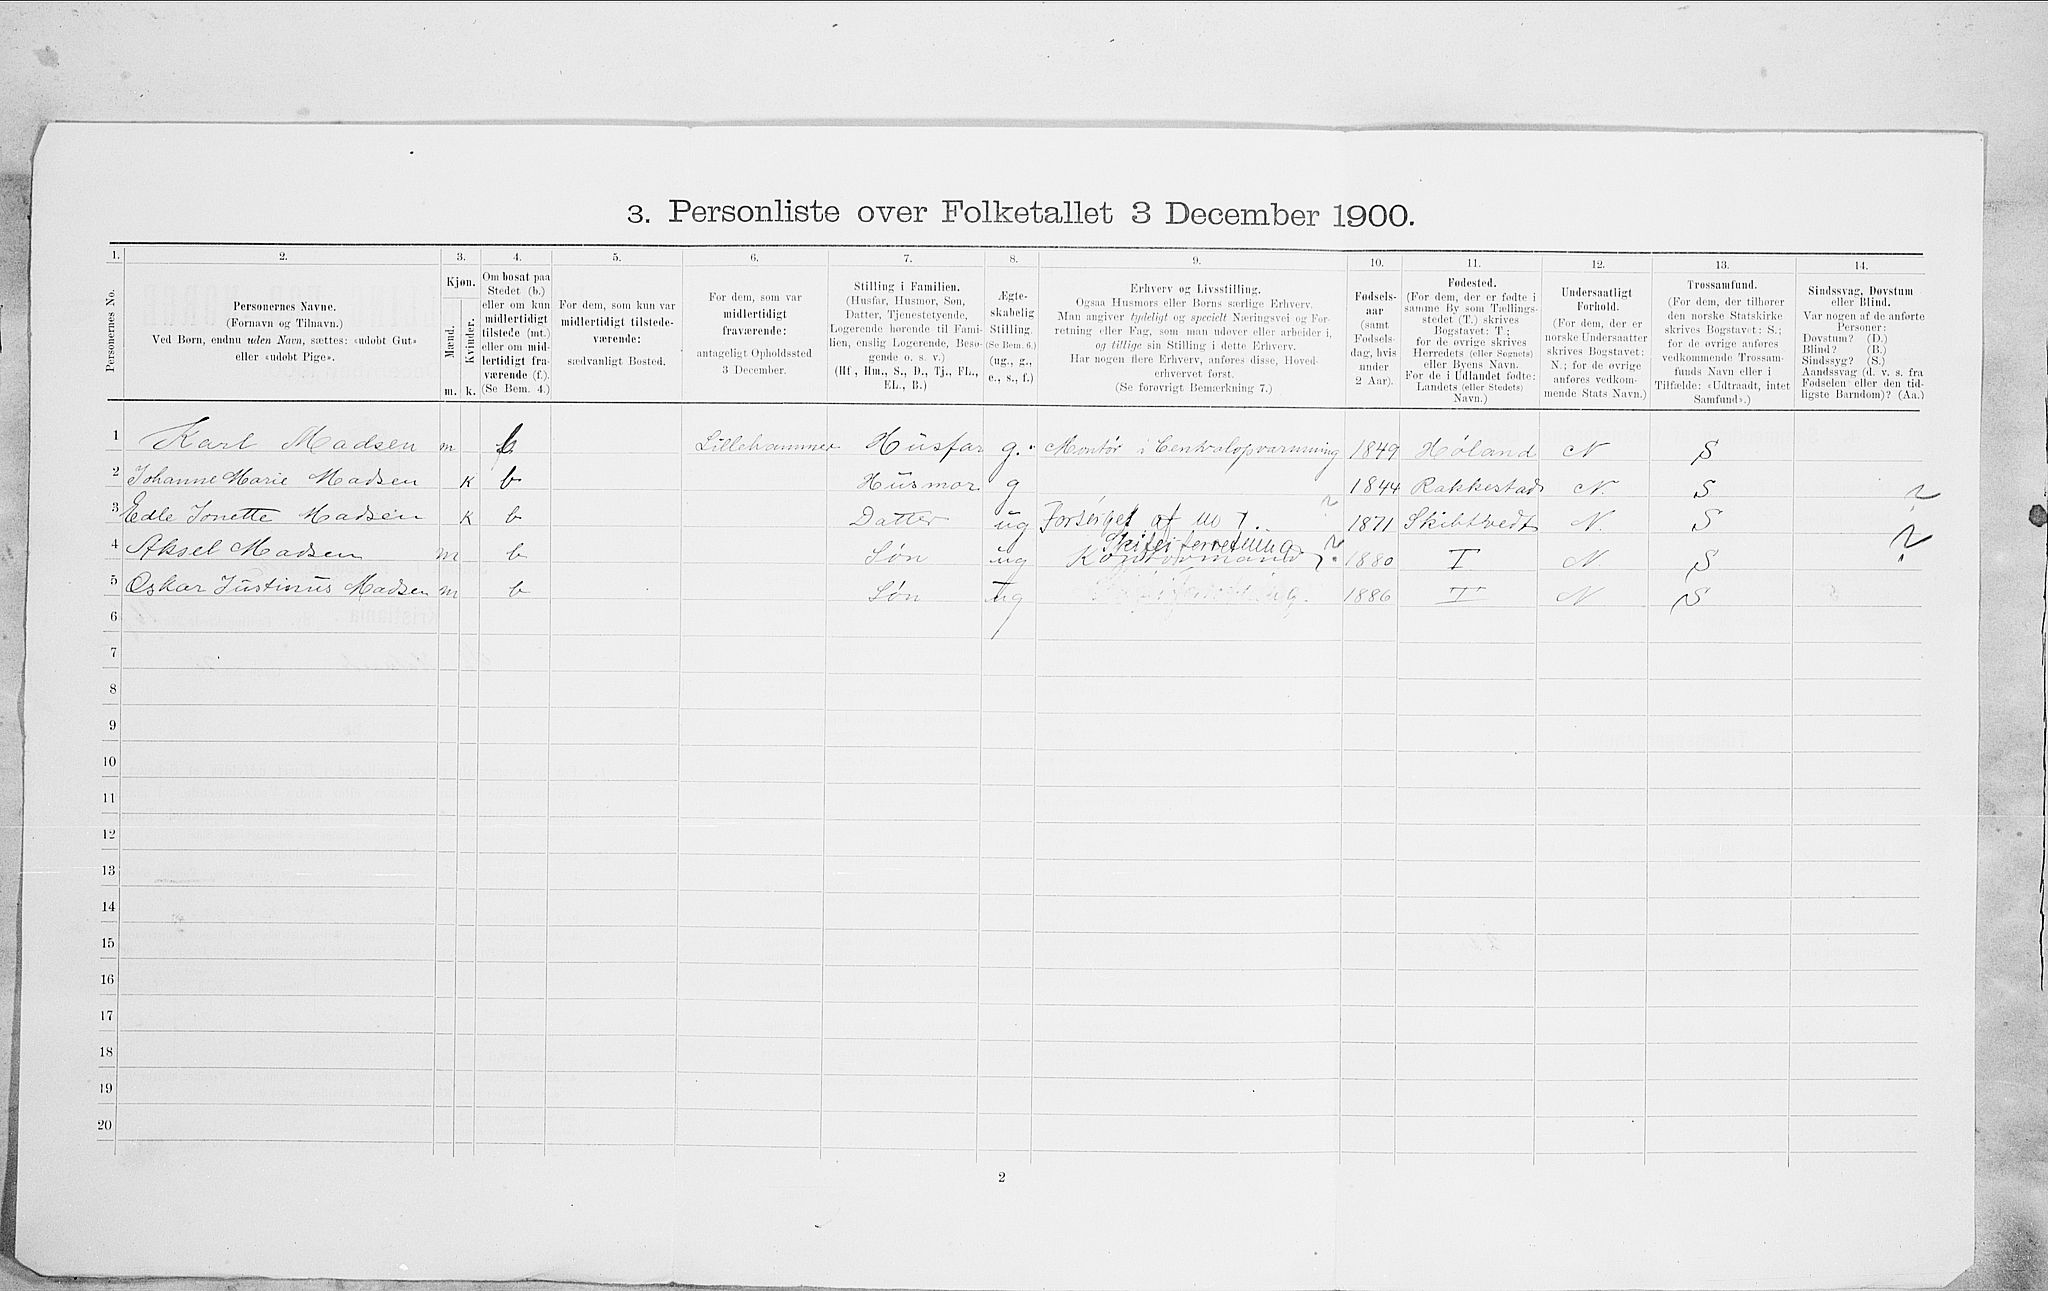 3. Personliste over Folketallet 3 December 1900.
1. 2. 3. 4. 5. 6. 7. 8. 9. 10. 11. 12. 13. 14.
Personernes No.
Personernes Navne.
(Fornavn og Tilnavn.)
Ved Børn, endnu uden Navn, sættes: «udobt Gut»
eller «udobt Pige».
Kjøn.
Mænd.
Kvinder.
m. k.
Om bosat paa
Stedet (b.)
eller om kun
midlertidigt
tilstede (mt.)
eller om mid-
lertidigt fra-
værende (f.).
(Se Bem. 4.)
For dem, som kun var
midlertidigt tilstede-
værende:
sædvanligt Bosted.
For dem, som var
midlertidigt
fraværende:
antageligt Opholdssted
3 December.
Stilling i Familien.
(Husfar, Husmor, Søn,
Datter, Tjenestetyende,
Logerende hørende til Fami-
lien, enslig Logerende, Besø-
gende o. s. v.)
(Hf, Hm., S., D., Tj., FL.,
EL., B.)
Ægte-
skabelig
Stilling.
(Se Bem. 6.)
(ug., g.,
e., s., f.)
Erhverv og Livsstilling.
Ogsaa Husmors eller Børns særlige Erhverv.
Man angiver tydeligt og specielt Næringsvei og For-
retning eller Fag, som man udøver eller arbeider i,
og tillige sin Stilling i dette Erhverv.
Har nogen flere Erhverv, anføres disse, Hoved-
erhvervet først.
(Se forøvrigt Bemerkning 7.)
Fødsels-
aar
(samt
Fødsels-
dag, hvis
under
2 Aar).
Fødested.
(For dem, der er fødte i
samme By som Tællings-
stedet (T.) skrives
Bogstavet: T;
for de øvrige skrives
Herredets (eller Sognets)
eller Byens Navn.
For de i Udlandet fødte:
Landets (eller Stedets)
Navn.)
Undersaatligt
Forhold.
(For dem, der er
norske Undersaatter
skrives Bogstavet:
N.; for de øvrige
anføres vedkom-
mende Stats Navn.)
Trossamfund.
(For dem, der tilhører
den norske Statskirke
skrives Bogstavet: S.;
for de øvrige anføres
vedkommende Trossam-
funds Navn eller i
Tilfælde: «Udtraadt, intet
Samfund».)
Sindssvag, Døvstum
eller Blind.
Var nogen af de anførte
Personer:
Døvstum? (D.)
Blind? (B.)
Sindssyg? (S.)
Aandssvag (d. v. s. fra
Fødselen eller den tid-
ligste Barndom)? (Aa.)
1 Karl Madsen m Lillehammer Husfar g. Montør i Centralopvarmning 1849 Høland N S
2 Johanne Marie Madsen K b Husmor g 1844 Rakkestad N. S ?
3 Edle Jonette Madsen K b Datter ug Forsørget af 1871 Skibtvedt N. S
Skifeiforretning ?
4 Aksel Madsen m b Søn ug Kontormand 1880 T N. S ?
5 Oskar Justinus Madsen m b Søn ug 1886 T N S
6
7
8
9
10
11
12
13
14
15
16
17
18
19
20
2